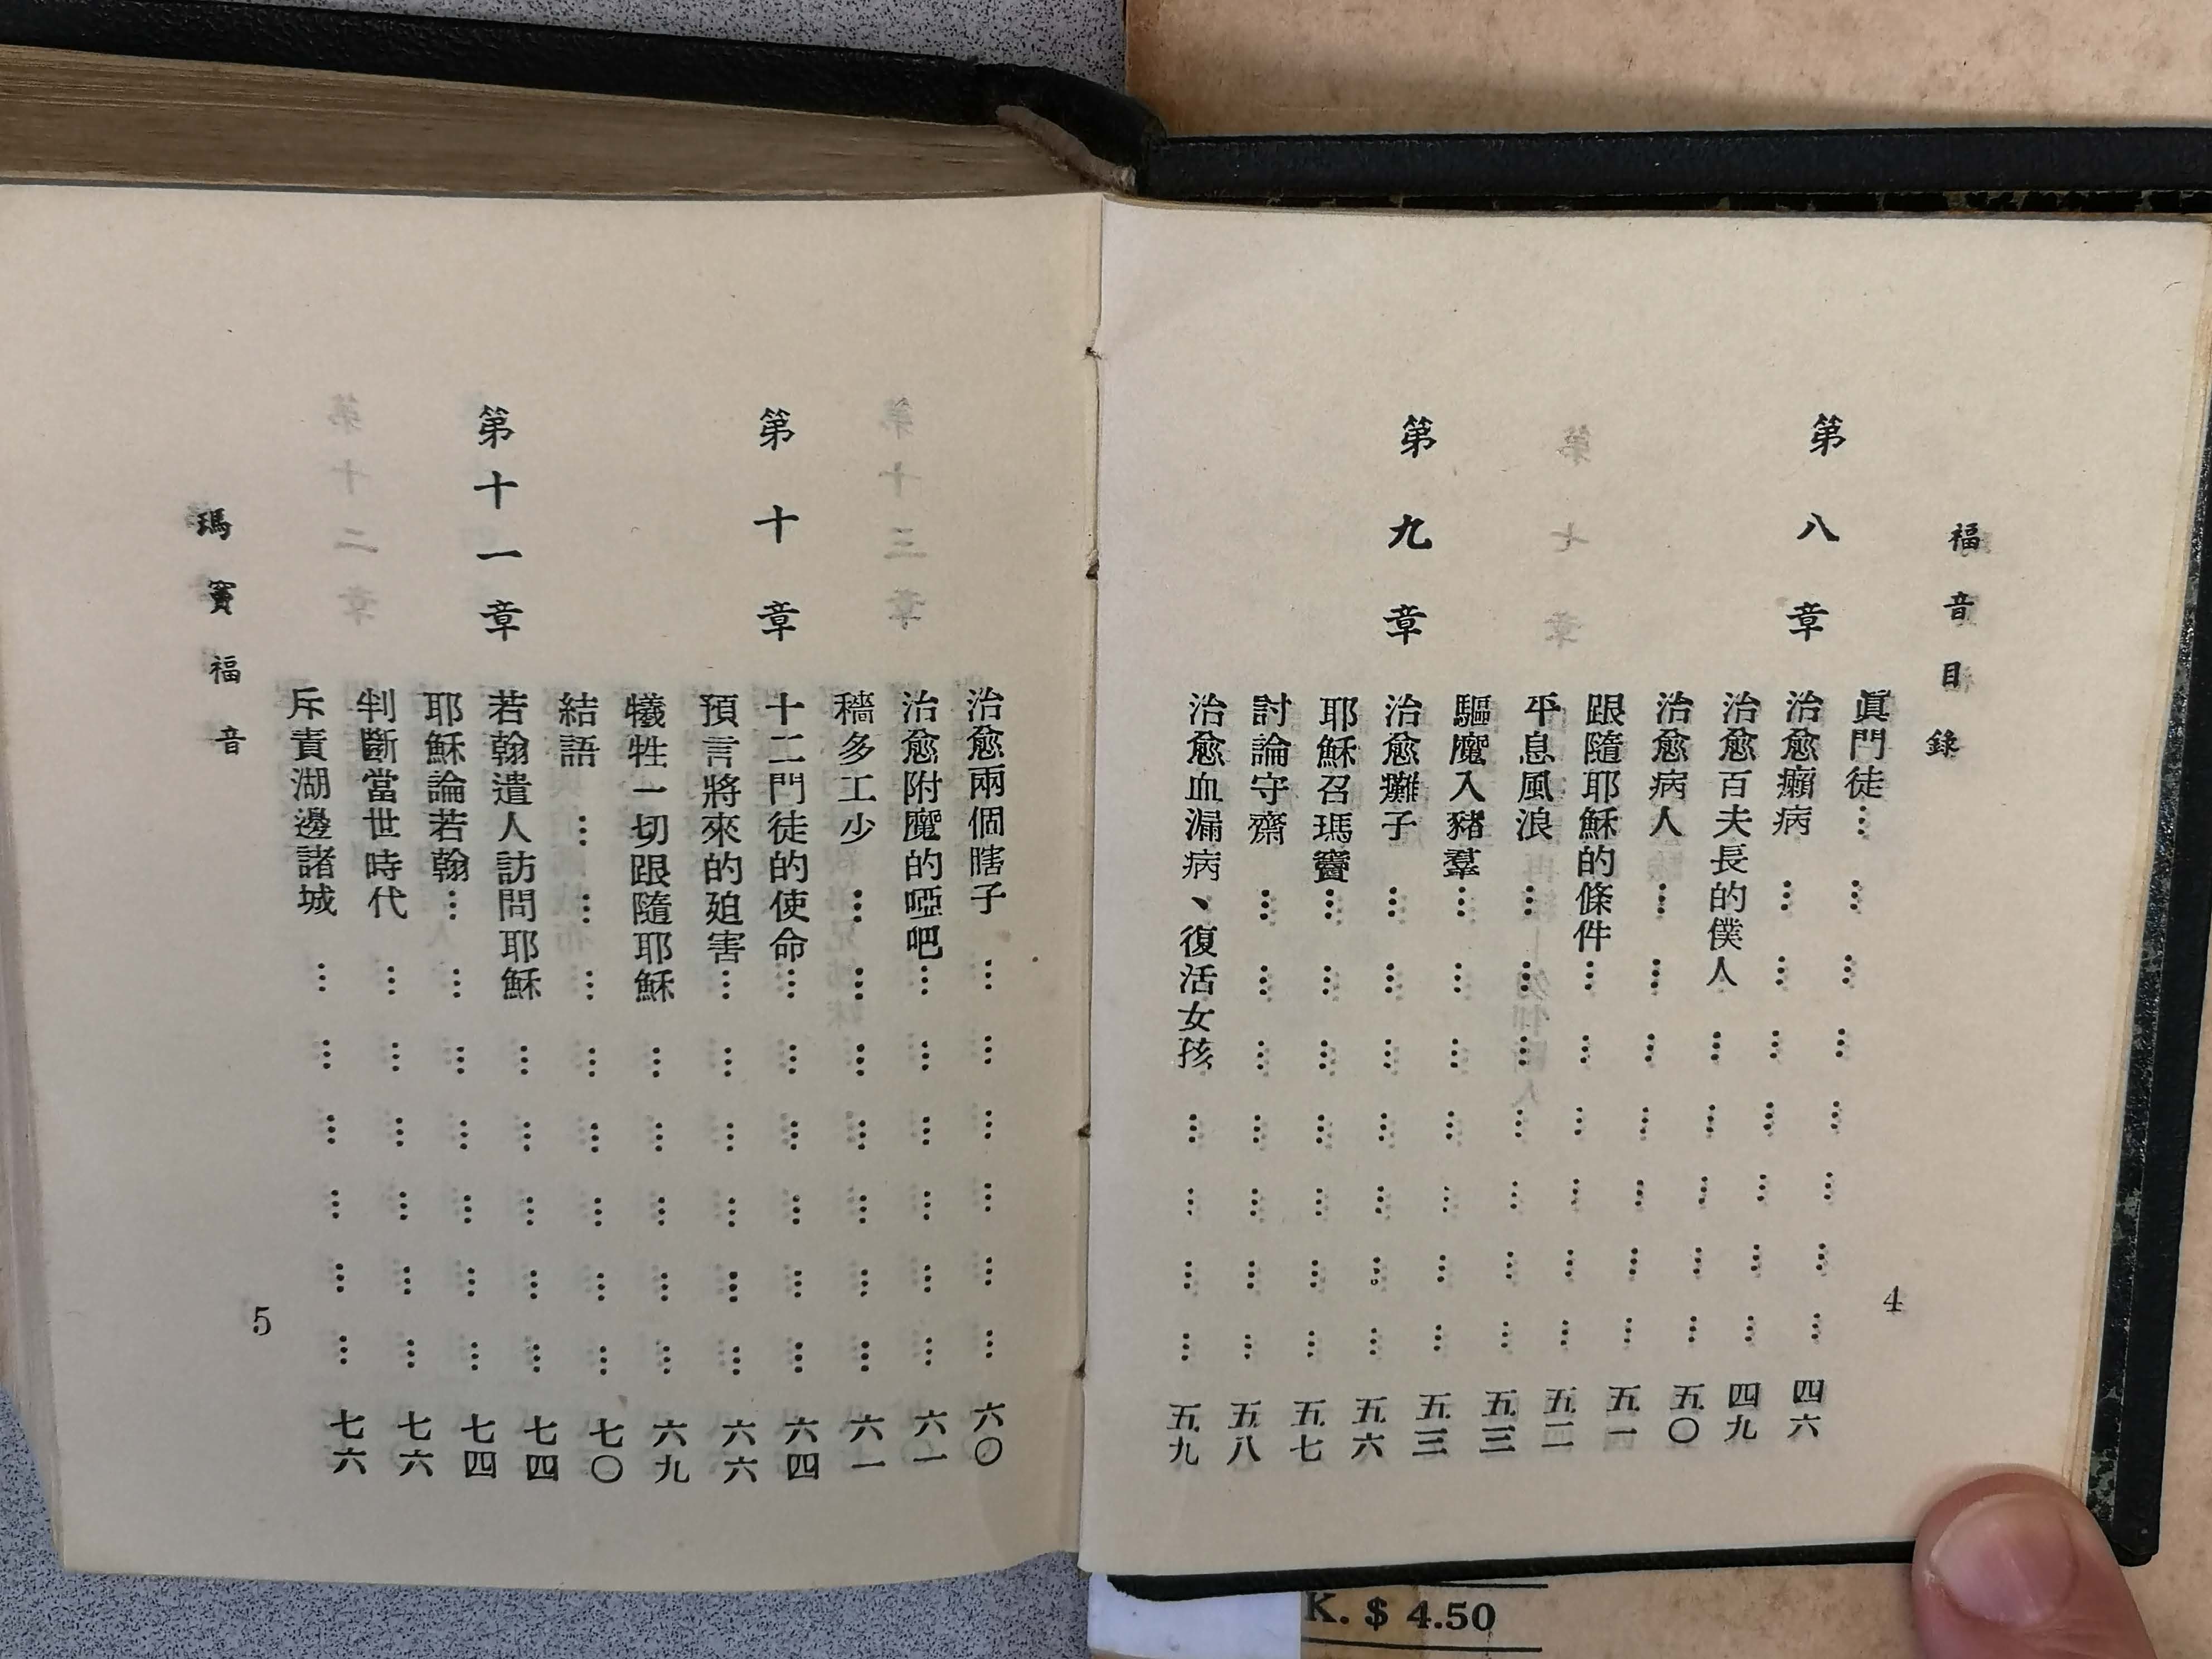 福音目錄
眞門徒⋯⋯⋯⋯⋯⋯⋯⋯四六
第八章
治愈癩病⋯⋯⋯⋯⋯⋯⋯四九
治愈百夫長的僕人⋯⋯⋯⋯⋯五〇
治愈病人⋯⋯⋯⋯⋯⋯⋯五一
跟隨耶穌的條件⋯⋯⋯⋯⋯⋯五二
平息風浪⋯⋯⋯⋯⋯⋯⋯五三
驅魔入豬羣⋯⋯⋯⋯⋯⋯⋯五三
第九章
治愈癱子⋯⋯⋯⋯⋯⋯⋯五六
耶穌召瑪竇⋯⋯⋯⋯⋯⋯⋯五七
討論守齋⋯⋯⋯⋯⋯⋯⋯五八
治愈血漏病、復活女孩⋯⋯⋯⋯五九
4
治愈兩個瞎子⋯⋯⋯⋯⋯⋯六〇
治愈附魔的啞吧⋯⋯⋯⋯⋯⋯六一
穡多工少⋯⋯⋯⋯⋯⋯⋯六一
第十章
十二門徒的使命⋯⋯⋯⋯⋯⋯六四
預言將來的廹害⋯⋯⋯⋯⋯⋯六六
犧牲一切跟隨耶穌⋯⋯⋯⋯⋯六九
結語⋯⋯⋯⋯⋯⋯⋯⋯七〇
第十一章
若翰遣人訪問耶穌⋯⋯⋯⋯⋯七四
耶穌論若翰⋯⋯⋯⋯⋯⋯⋯七四
判斷當世時代⋯⋯⋯⋯⋯⋯七六
斥責湖邊諸城⋯⋯⋯⋯⋯⋯七六
瑪竇福音
5
K. $ 4.50